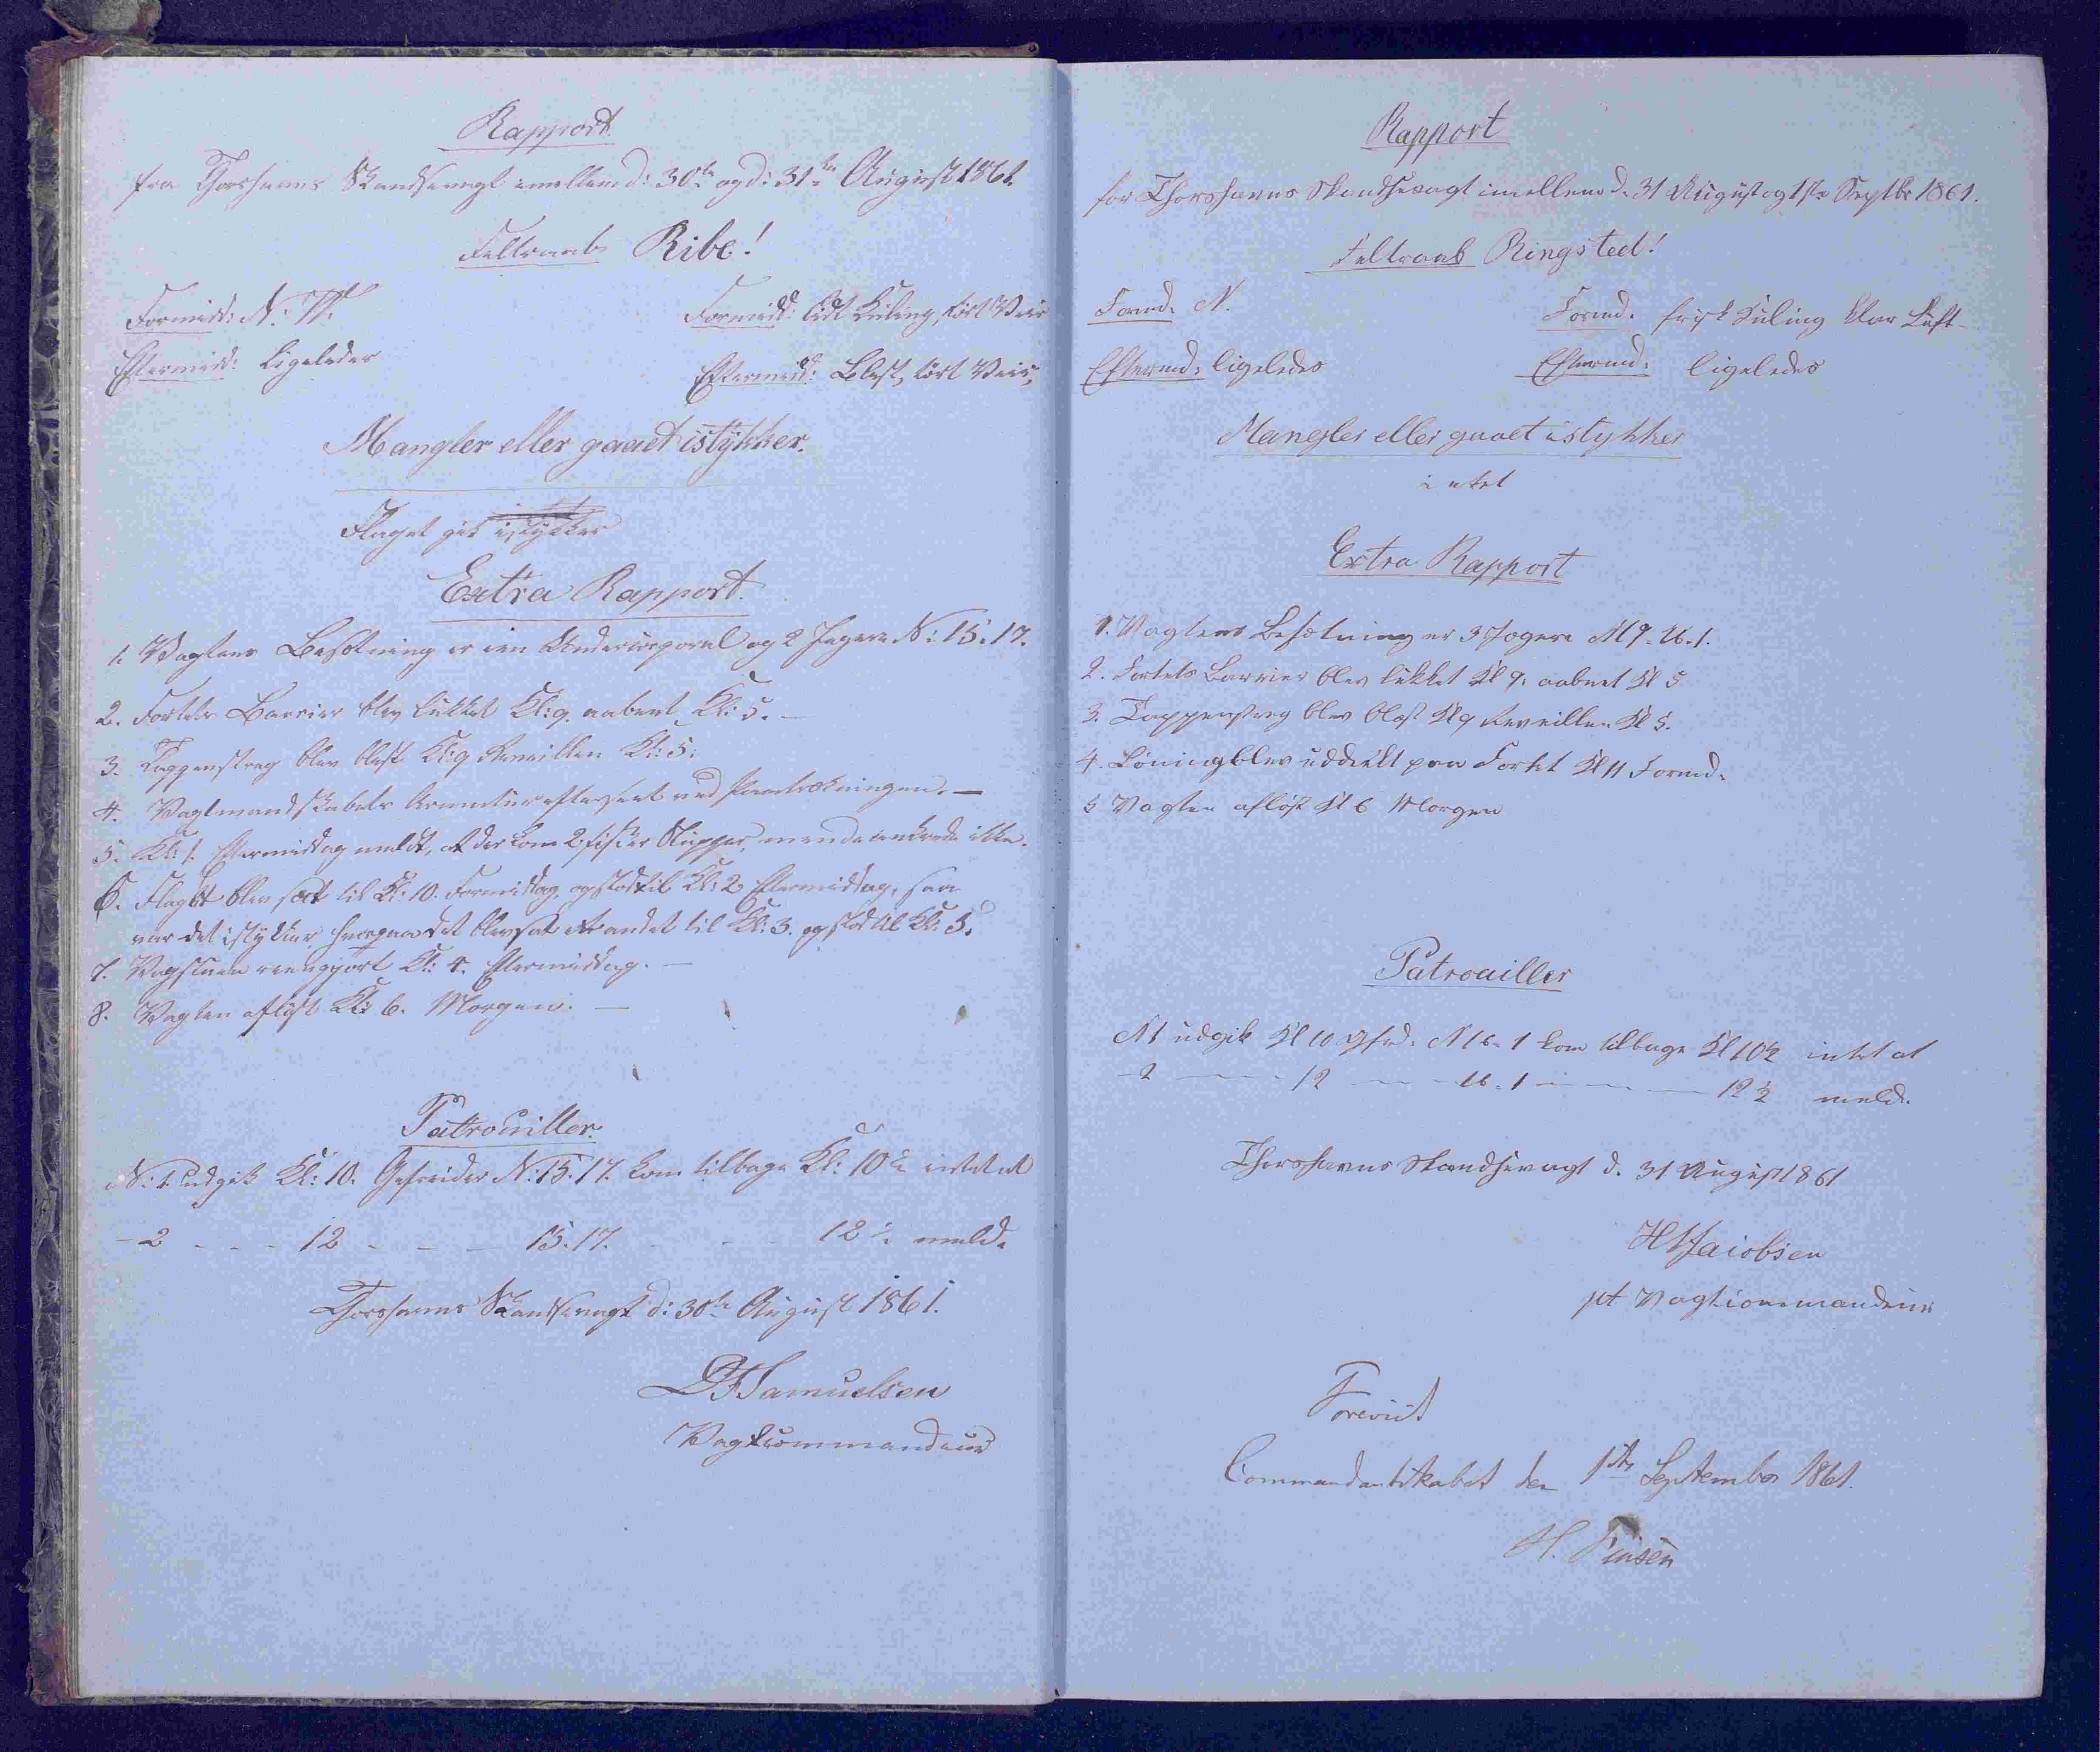 Rapport
fra Thorshavns Skandsevagt imellem d: 30te og d: 31te August 1861.
Feltraab Ribe!
Formidd: N. W.
Formidd: lidt Kuling, tört Veir
Eftermidd: Ligeledes
Eftermidd: Blæst, tört Veir,
Mangler eller gaaet istykker.
Flaget gik istykker
Extra Rapport.
1. Vagtens Besætning er een Undercorporal og 2 Jægere N: 15. 17.
2. Fortets Barrier blev lukket Kl: 9. aabnet Kl: 5. —
3. Tappenstreg blev blæst Kl: 9 Reveillen Kl: 5.
4. Vagtmandskabets Armatur efterseet ved Paatrækningen. —
5. Kl: 1. Eftermiddag meldt, at der kom 2 fisker Slupper, men de ankrede ikke.
6. Flaget blev sat til Kl: 10. Formiddag, og stod til Kl: 2 Eftermiddag, saa
var det istykker hvorpaa det blev sat et andet til Kl: 3. og stod til Kl: 5.
7. Vagstuen reengjort Kl: 4. Eftermiddag. —
8. Vagten aflöst Kl: 6. Morgen. —
Patrouiller.
N: 1. udgik Kl: 10. Gefreider N: 15. 17. kom tilbage Kl: 10½ intet at
- 2 - - - 12 - - - 15. 17. - - - 12½ meld.
Thorshavns Skandsevagt d: 30te August 1861.
DJSamuelsen
Vagtcommandeur
Rapport
for Thorshavns Skandsevagt imellem d. 31 August og 1ste Septbr 1861.
Feltraab Ringsted!
Formd. N.
Formd. frisk Kuling klar Luft
Eftermd: ligeledes
Eftermd: ligeledes
Mangler eller gaaet istykker
intet
Extra Rapport
1. Vagtens Besætning er 3 Jægere N 9. 16. 1.
2. Fortets Barrier blev lukket Kl 9. aabnet Kl 5
3. Tappenstreg blev blæst Kl 9 Reveillen Kl 5.
4. Lönning blev uddeelt paa Fortet Kl 11 Formd.
5 Vagten aflöst Kl 6 Morgen
Patrouiller
N 1 udgik Kl 10 Gfrd. N 16. 1 kom tilbage Kl 10½ intet at
- 2 — 12 — 16. 1 — 12½ meld.
Thorshavns Skandsevagt d. 31 August 1861
HJacobsen
pt Vagtcommandeur
Foreviist
Commandantskabet den 1ste September 1861.
H. Finsen